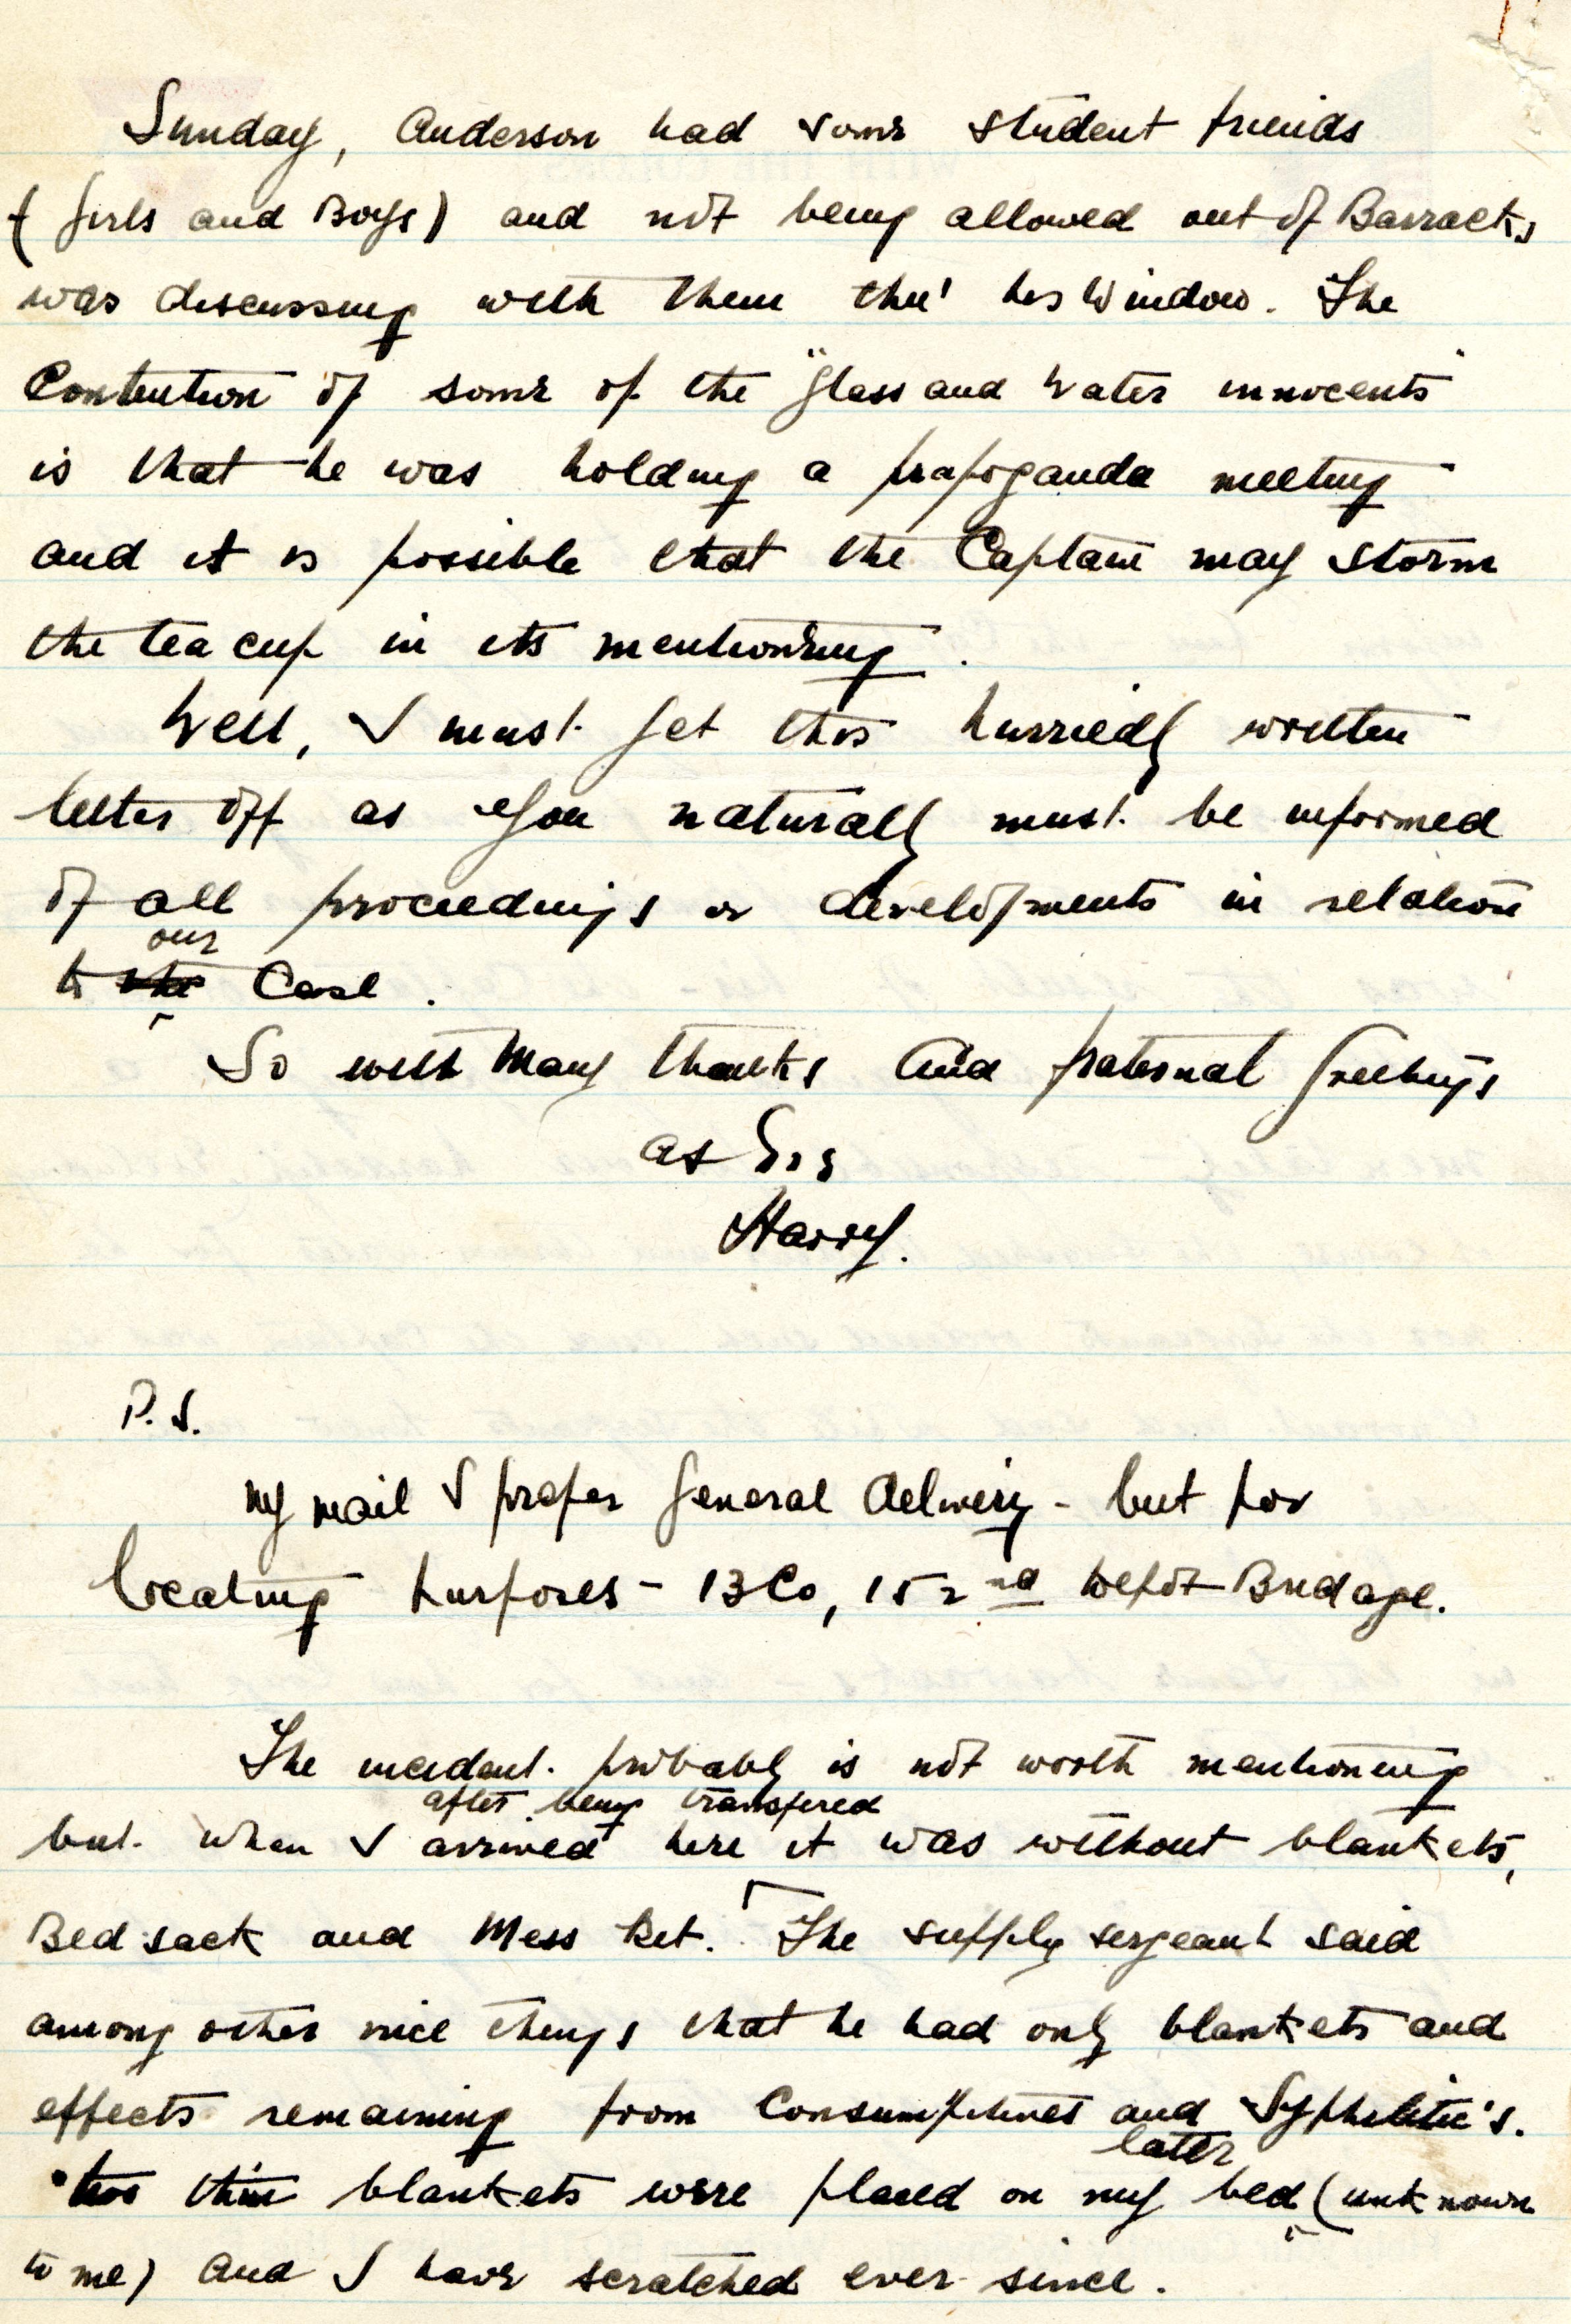 Sunday, Anderson had some student friends
(Girls and Boys) and not being allowed out of Barracks,
was discussing with them thru' his Window. The
Contention of some of the "Glass and Water innocents"
is that he was holding a propoganda meeting
and it is possible that the Captain may storm
the tea cup in its mentioning.
Well, I must get this hurriedly written
letter off as you naturally must be informed
of all proceedings or developments in relation
our
to the Case.
So with Many thanks and fraternal greetings
as Ers
Harry.
P.S.
My mail I prefer General Delivery - but for
locating purposes - 13 Co, 152nd Depot Bridage.
The incident probably is not worth mentioning
after being transfered
but when I arrived here it was without blankets,
Bed sack and Mess Ket. The supply sergeant said
among other nice things that he had only blankets and
effects remaining from Consumptives and Syphilitic's.
later
two thin blankets were placed on my bed (unknown
to me) and I have scratched ever since.